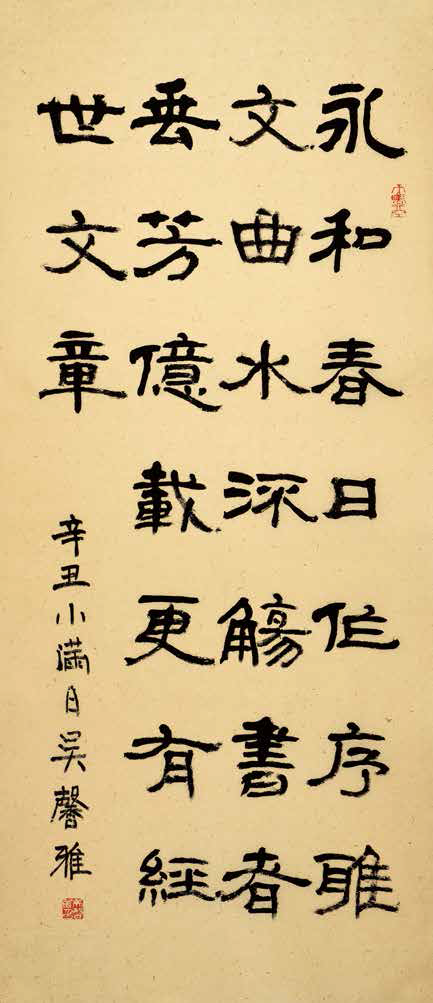 永和春日作序雅
文曲水流觴書者
垂芳億載更有經
世文章
辛丑小滿日吳馨雅